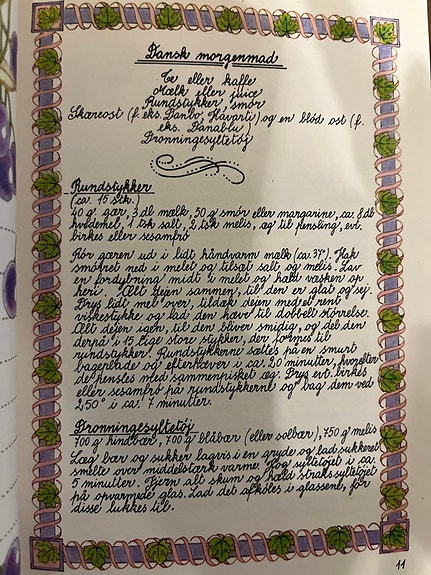 Dansk morgenmad
Te eller kaffe
Mælk eller juice
Rundstykker, smör
Skæreost (f. eks. Danbo, Havarti) og en blöd ost (f.
eks. Danablu)
Dronningesyltetöj
Rundstykker
(ca. 15 stk.)
40 g gær, 3 dl mælk, 50 g smör eller margarine, ca. 8 dl
hvedemel, 1 tsk salt, 2 tsk melis, æg til pensling, evt.
birkes eller sesamfrö
Rör gæren ud i lidt håndvarm mælk (ca. 37°). Hak
smörret ned i melet og tilsæt salt og melis. Lav
en fordybning midt i melet og hæld væsken op
heri. Ælt dejen sammen, til den er glat og sej.
Drys lidt mel over, tildæk dejen med et rent
viskestykke og lad den hæve til dobbelt störrelse.
Ælt dejen igen, til den bliver smidig, og del den
derpå i 15 lige store stykker, der formes til
rundstykker. Rundstykkerne sættes på en smurt
bageplade og efterhæver i ca. 20 minutter, hvorefter
de pensles med sammenpisket æg. Drys evt. birkes
eller sesamfrö på rundstykkerne og bag dem ved
250° i ca. 7 minutter.
Dronningesyltetöj
700 g hindbær, 700 g blåbær (eller solbær), 750 g melis
Læg bær og sukker lagvis i en gryde og lad sukkeret
smelte over middelstærk varme. Kog syltetöjet i ca.
5 minutter. Fjern alt skum og hæld straks syltetöjet
på opvarmede glas. Lad det afköles i glassene, för
disse lukkes til.
11